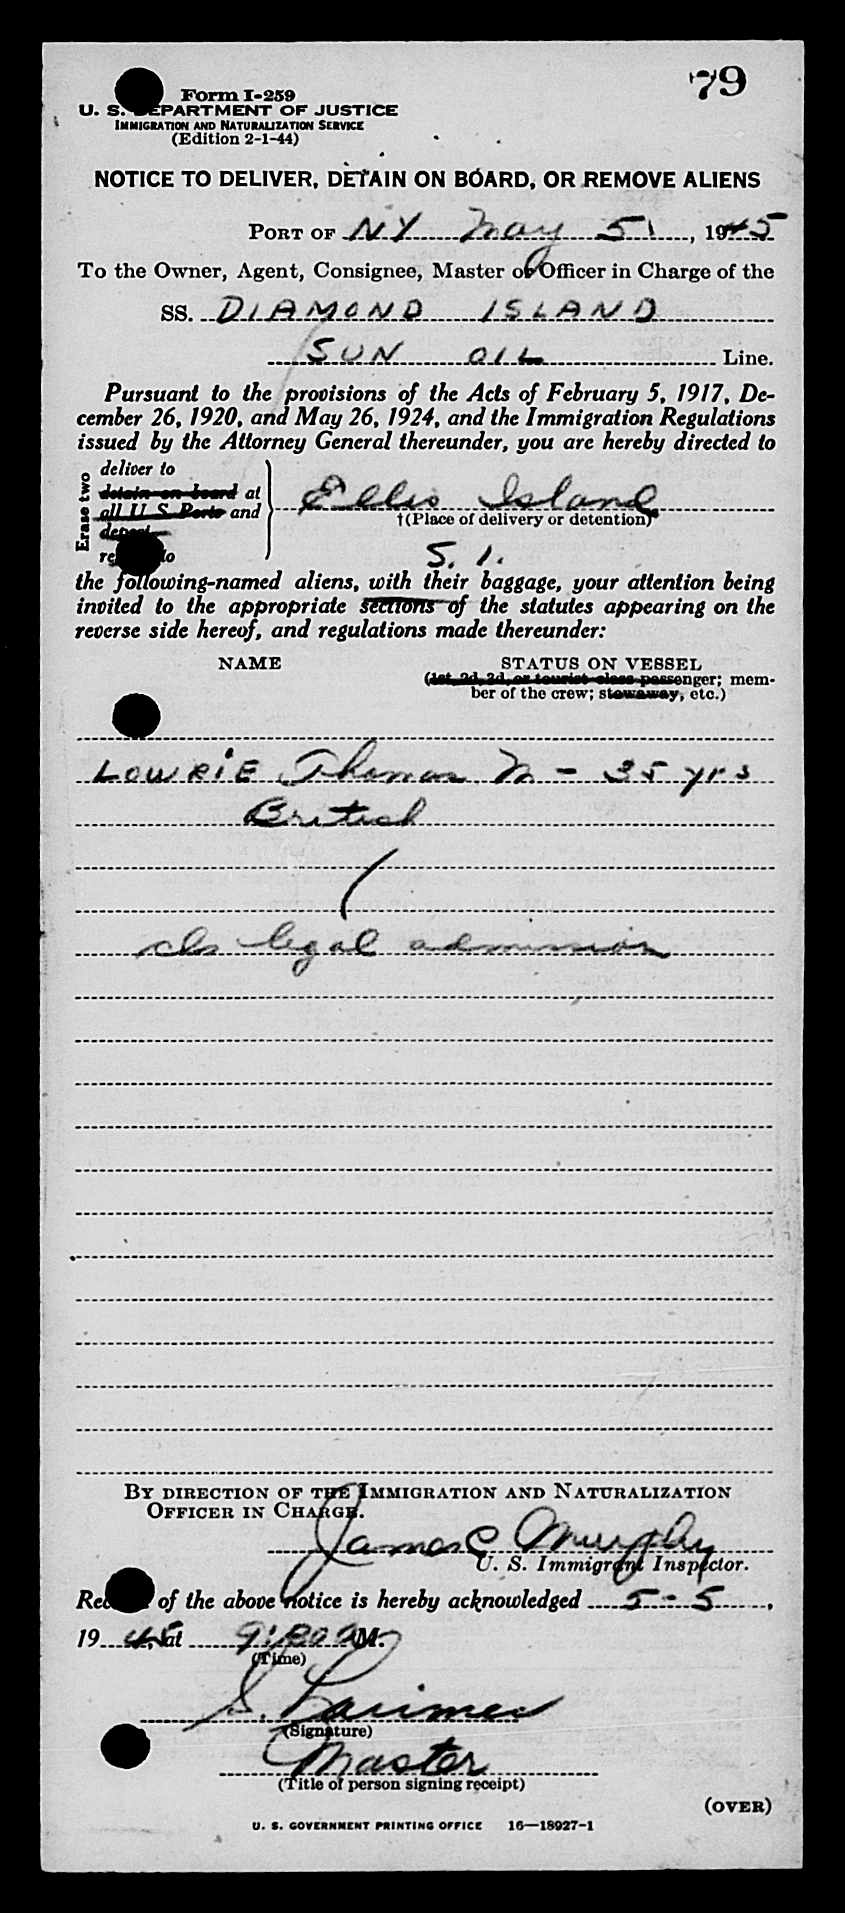 79
Form I-259
U. S. DEPARTMENT OF JUSTICE
IMMIGRATION AND NATURALIZATION SERVICE
(Edition 2-1-44)
NOTICE TO DELIVER, DETAIN ON BOARD, OR REMOVE ALIENS
PORT OF NY May 5, 1945
To the Owner, Agent, Consignee, Master or Officer in Charge of the
SS. DIAMOND ISLAND
SUN OIL Line.
Pursuant to the provisions of the Acts of February 5, 1917, De-
cember 26, 1920, and May 26, 1924, and the Immigration Regulations
issued by the Attorney General thereunder, you are hereby directed to
Erase two
deliver to
detain on board at
all U S Ports and
Ellis Island
†(Place of delivery or detention)
to
S. I.
the following-named aliens, with their baggage, your attention being
invited to the appropriate sections of the statutes appearing on the
reverse side hereof, and regulations made thereunder:
NAME STATUS ON VESSEL
(1st, 2d, 3d, or tourist class passenger; mem-
ber of the crew; stowaway, etc.)
LOWRIE Thomas M - 35 yrs
British
cls legal admission
BY DIRECTION OF THE IMMIGRATION AND NATURALIZATION
OFFICER IN CHARGE.
James C Murphy
U. S. Immigrant Inspector.
Receipt of the above notice is hereby acknowledged 5-5,
1945, at 9:30 A M.
(Time)
S. Larimer
(Signature)
Master
(Title of person signing receipt)
(OVER)
U. S. GOVERNMENT PRINTING OFFICE 16—18927-1